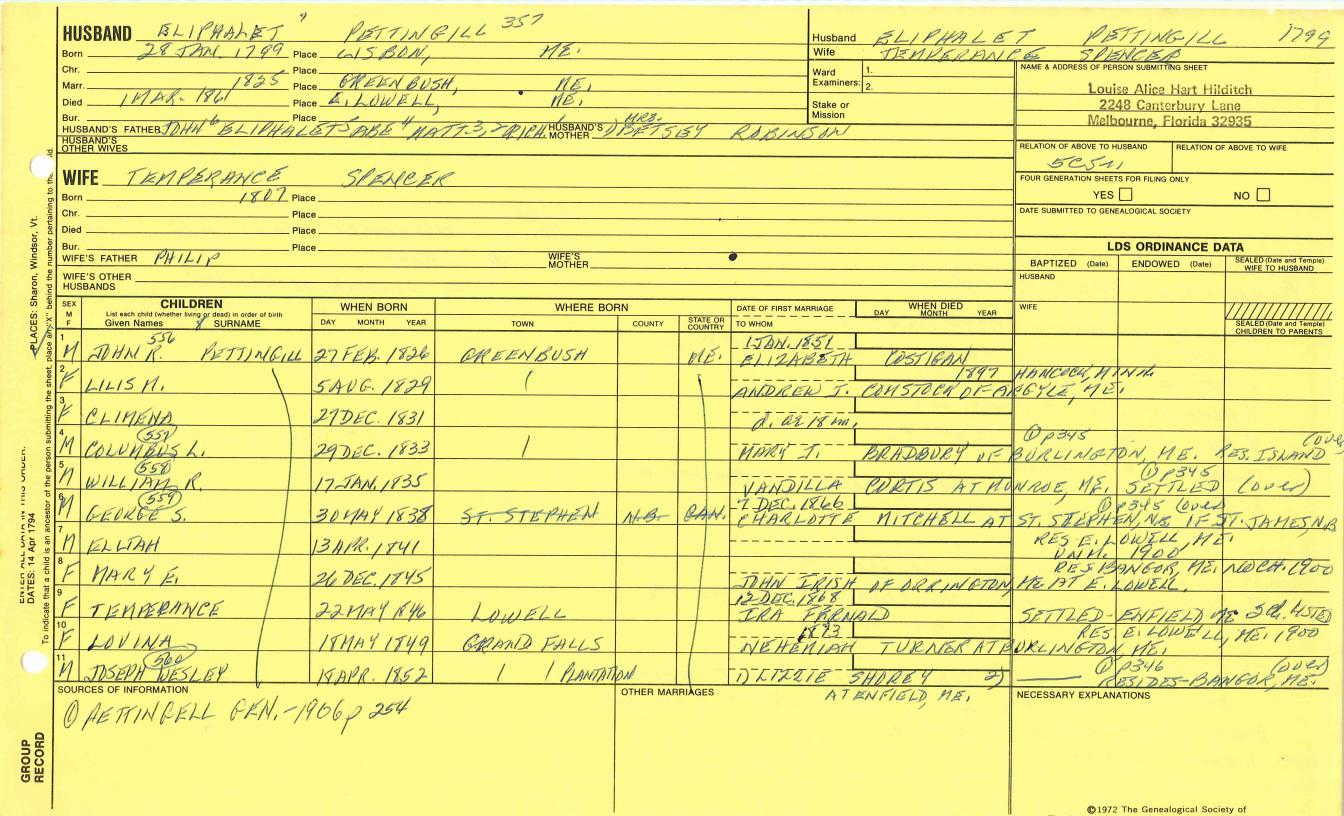 HUSBAND ELIPHALET " PETTINGILL 357
Born 28 JAN. 1799 Place LISBON, ME.
Chr. Place
Marr. 1825 Place GREENBUSH, ME.
Died 1 MAR. 186 Place E. LOWELL, ME.
Bur. Place
HUSBAND'S FATHER JOHN 6 ELIPHALET 5 ABE 4 MATT. 3, 2 RICH. HUSBAND'S MOTHER MRS. BETSEY ROBINSON
HUSBAND'S OTHER WIVES
WIFE TEMPERANCE SPENCER
Born 1807 Place
Chr. Place
Died Place
Bur. Place
WIFE'S FATHER PHILIP WIFE'S MOTHER
WIFE'S OTHER HUSBANDS
Husband ELIPHALET PETTINGILL 1799
Wife TEMPERANCE SPENCER
Ward Examiners: 1.
2.
Stake or Mission
NAME & ADDRESS OF PERSON SUBMITTING SHEET
Louise Alice Hart Hilditch
2248 Canterbury Lane
Melbourne, Florida 32935
RELATION OF ABOVE TO HUSBAND RELATION OF ABOVE TO WIFE
5C5
FOUR GENERATION SHEETS FOR FILING ONLY
YES NO
DATE SUBMITTED TO GENEALOGICAL SOCIETY
LDS ORDINANCE DATA
BAPTIZED (Date) ENDOWED (Date) SEALED (Date and Temple) WIFE TO HUSBAND
HUSBAND
WIFE
SEALED (Date and Temple) CHILDREN TO PARENTS
SEX M F CHILDREN WHEN BORN WHERE BORN DATE OF FIRST MARRIAGE WHEN DIED
List each child (whether living or dead) in order of birth
Given Names SURNAME DAY MONTH YEAR TOWN COUNTY STATE OR COUNTRY TO WHOM DAY MONTH YEAR
1 M 556 JOHN R. PETTINGILL 27 FEB. 1826 GREENBUSH ME. 1 JAN. 1851 ELIZABETH COSTIGAN
2 F LILIS M. 5 AUG. 1829 ANDREW J. COMSTOCK OF ARGYLE, ME. 1897 HANCOCK, MINN.
3 F CLIMENA 27 DEC. 1831 d. ae 18 m.
4 M 557 COLUMBUS L. 29 DEC. 1833 MARY J. BRADBURY OF BURLINGTON, ME. RES. ISLAND ① p345 (over
5 M 558 WILLIAM R. 17 JAN. 1835 VANDILLA CURTIS AT MONROE, ME. SETTLED (over) ① p345
6 M 559 GEORGE S. 30 MAY 1838 ST. STEPHEN N.B. CAN. 7 DEC. 1866 CHARLOTTE MITCHELL AT ST. STEPHEN, N.B. 1F ST. JAMES, N.B ① p345 (over
7 M ELIJAH 13 APR. 1841 RES E. LOWELL, ME. UNM. 1900
8 F MARY E. 26 DEC. 1845 JOHN IRISH OF ORRINGTON, ME AT E. LOWELL. RES BANGOR, ME. NO CH. 1900
9 F TEMPERANCE 22 MAY 1846 LOWELL 12 DEC. 1868 IRA FARNALD SETTLED-ENFIELD ME
10 F LOVINA 18 MAY 1849 GRAND FALLS 1873 NEHEMIAH TURNER AT BURLINGTON, ME. RES E. LOWELL, ME. 1900
11 M 560 JOSEPH WESLEY 18 APR. 1852 PLANTATION 1) LIZZIE SHOREY 2) ① p346 (over) RESIDES-BANGOR, ME.
AT ENFIELD, ME.
SOURCES OF INFORMATION OTHER MARRIAGES NECESSARY EXPLANATIONS
① PETTINGELL GEN. - 1906 p 254
©1972 The Genealogical Society of
PLACES: Sharon, Windsor, Vt.
ENTER ALL DATA IN THIS ORDER:
DATES: 14 Apr 1794
To indicate that a child is an ancestor of the person submitting the sheet, place an "X" behind the number pertaining to
GROUP RECORD